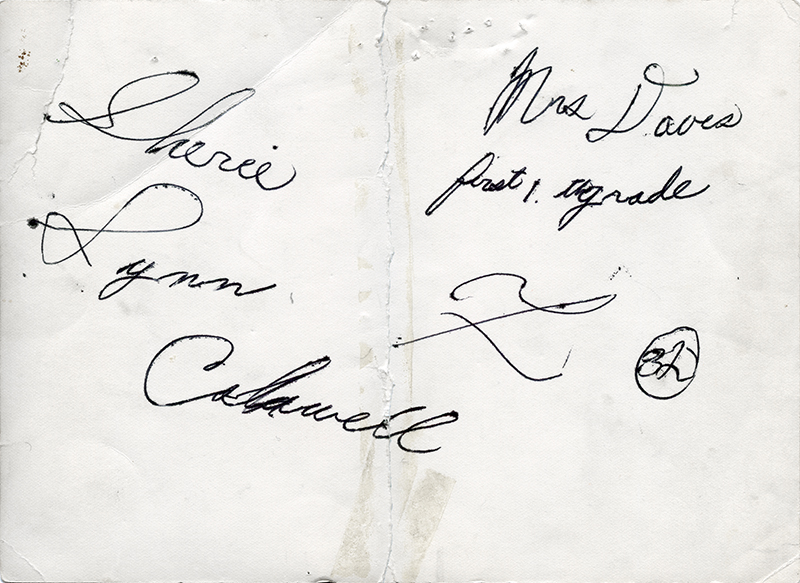 Sherie
Lynn
Caldwell
Mrs Daves
first 1. grade
32